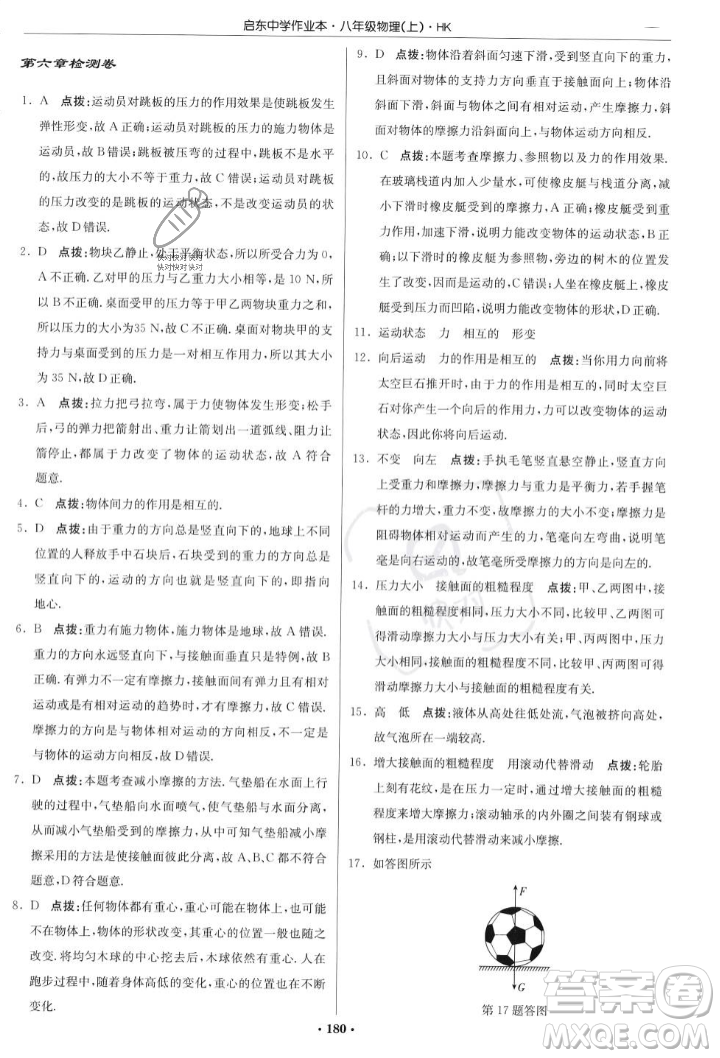 启东中学作业本·八年级物理(上)·HK
第六章检测卷
1. A 点拨:运动员对跳板的压力的作用效果是使跳板发生
弹性形变,故 A 正确;运动员对跳板的压力的施力物体是
运动员,故 B 错误;跳板被压弯的过程中,跳板不是水平
的,压力的大小不等于重力,故 C 错误;运动员对跳板的
压力改变的是跳板的运动状态,不是改变运动员的运动状
态,故 D 错误.
2. D 点拨:物块乙静止,处于平衡状态,所以所受合力为 0,
A 不正确.乙对甲的压力等于乙的重力,是 10 N,所以
B 不正确.桌面受甲的压力等于甲乙两物块重力之和,所
以压力的大小为35 N,故 C 不正确.桌面对物块甲的支持
力与桌面受到的压力是一对相互作用力,所以大小相等,
为 35 N,故 D 正确.
3. A 点拨:拉力把弓拉弯,属于力使物体发生形变;松手
后,弓的弹力把箭射出、重力让箭划出一道弧线、阻力使
箭停止,都属于力改变了物体的运动状态.故 A 符合
题意.
4. C 点拨:物体间力的作用是相互的.
5. D 点拨:由于重力的方向总是竖直向下的,地球上不同
位置的人释放手中石块后,石块所受到的重力的方向总是
竖直向下的,运动的方向也就是竖直向下的,即都是指向
地心.
6. B 点拨:重力有施力物体,施力物体是地球,故 A 错误.
重力的方向永远竖直向下,与接触面垂直只是特例,故 B
正确.有弹力不一定有摩擦力,还得看两个物体是否有相对
运动或者是有相对运动的趋势时,才有摩擦力,故 C 错误.
摩擦力的方向是与物体相对运动的方向相反,不一定是
与物体的运动方向相反,故 D 错误.
7. D 点拨:本题考查减小摩擦的方法.气垫船在水面上行
驶的过程中,气垫船向水面喷气,使气垫船与水面彼此分
离,从而减小气垫船受到的摩擦力,所以气垫船减小摩
擦采用的方法是使接触面彼此分离,故 A、B、C 不符合
题意,D 符合题意.
8. D 点拨:任何物体都有重心,重心可能在物体上,也可能
不在物体上,重心的位置与物体的形状、质量的分布情况
有关.将均匀木球的中心挖去后,木球依然有重心.人在
跑步过程中随着身体高低的变化,重心的位置一般也
变化.
9. B 点拨:物体沿着斜面匀速下滑,受到竖直向下的重力,
且斜面对物体的支持力方向垂直于斜面向上,物体沿斜面
下滑时,斜面与物体之间有相对运动,产生摩擦力,斜
面对物体的摩擦力沿斜面向上,与相对运动方向相反.
10. C 点拨:本题考查摩擦力、参照物以及力的作用效果.
在玻璃栈道内加入少量水,可以使接触面彼此分离,从而
减小下滑时橡皮艇受到的摩擦力,A 正确;橡皮艇能加
速下滑,说明力能改变物体的运动状态,B 正确;以橡皮
艇为参照物,橡皮艇与旁边的树木的位置发生了改变,
因此树木是运动的,C 错误;橡皮艇碰到栈道壁时受到
力的作用而凹陷,说明力能改变物体的形状,D 正确.
11. 运动状态 力 相互的 形变
12. 向后运动 力的作用是相互的 点拨:当你用力向前将
太空巨石推开时,由于力的作用是相互的,同时太空巨
石对你产生一个向后的作用力,力可以改变物体的运动
状态,因此你将向后运动.
13. 不变 向左 点拨:手执毛笔竖直悬空静止,竖直方向
上受到的摩擦力与重力是平衡力,摩擦力不变,若增大握
杆的力增大,毛笔仍静止,故摩擦力大小不变.摩擦力是
阻碍物体相对运动的力,笔毫向左弯曲,说明书写时笔
毫是向右运动的,故笔毫所受摩擦力的方向是向左的.
14. 压力大小 接触面的粗糙程度 点拨:甲、乙两图中,接
触面的粗糙程度相同,压力大小不同,因此比较甲、乙两
图,说明摩擦力大小与压力大小有关;甲、丙两图中,压
力相同、接触面的粗糙程度不同,因此比较甲、丙两图,
说明摩擦力与接触面的粗糙程度有关.
15. 高 低 点拨:液体从高处往低处流,气泡被挤向高处,
故气泡所在一端较高.
16. 增大接触面的粗糙程度 用滚动代替滑动 点拨:轮胎
上刻有花纹,是在压力一定时,通过增大接触面的粗糙
程度来增大摩擦力的;滚动轴承的内外圈之间装有钢球或
钢柱,是用滚动代替滑动来减小摩擦.
17. 如答图所示
F
G
第 17 题答图
· 180 ·
快对快对快对
快对快对快对
答案圈
MXQE.COM